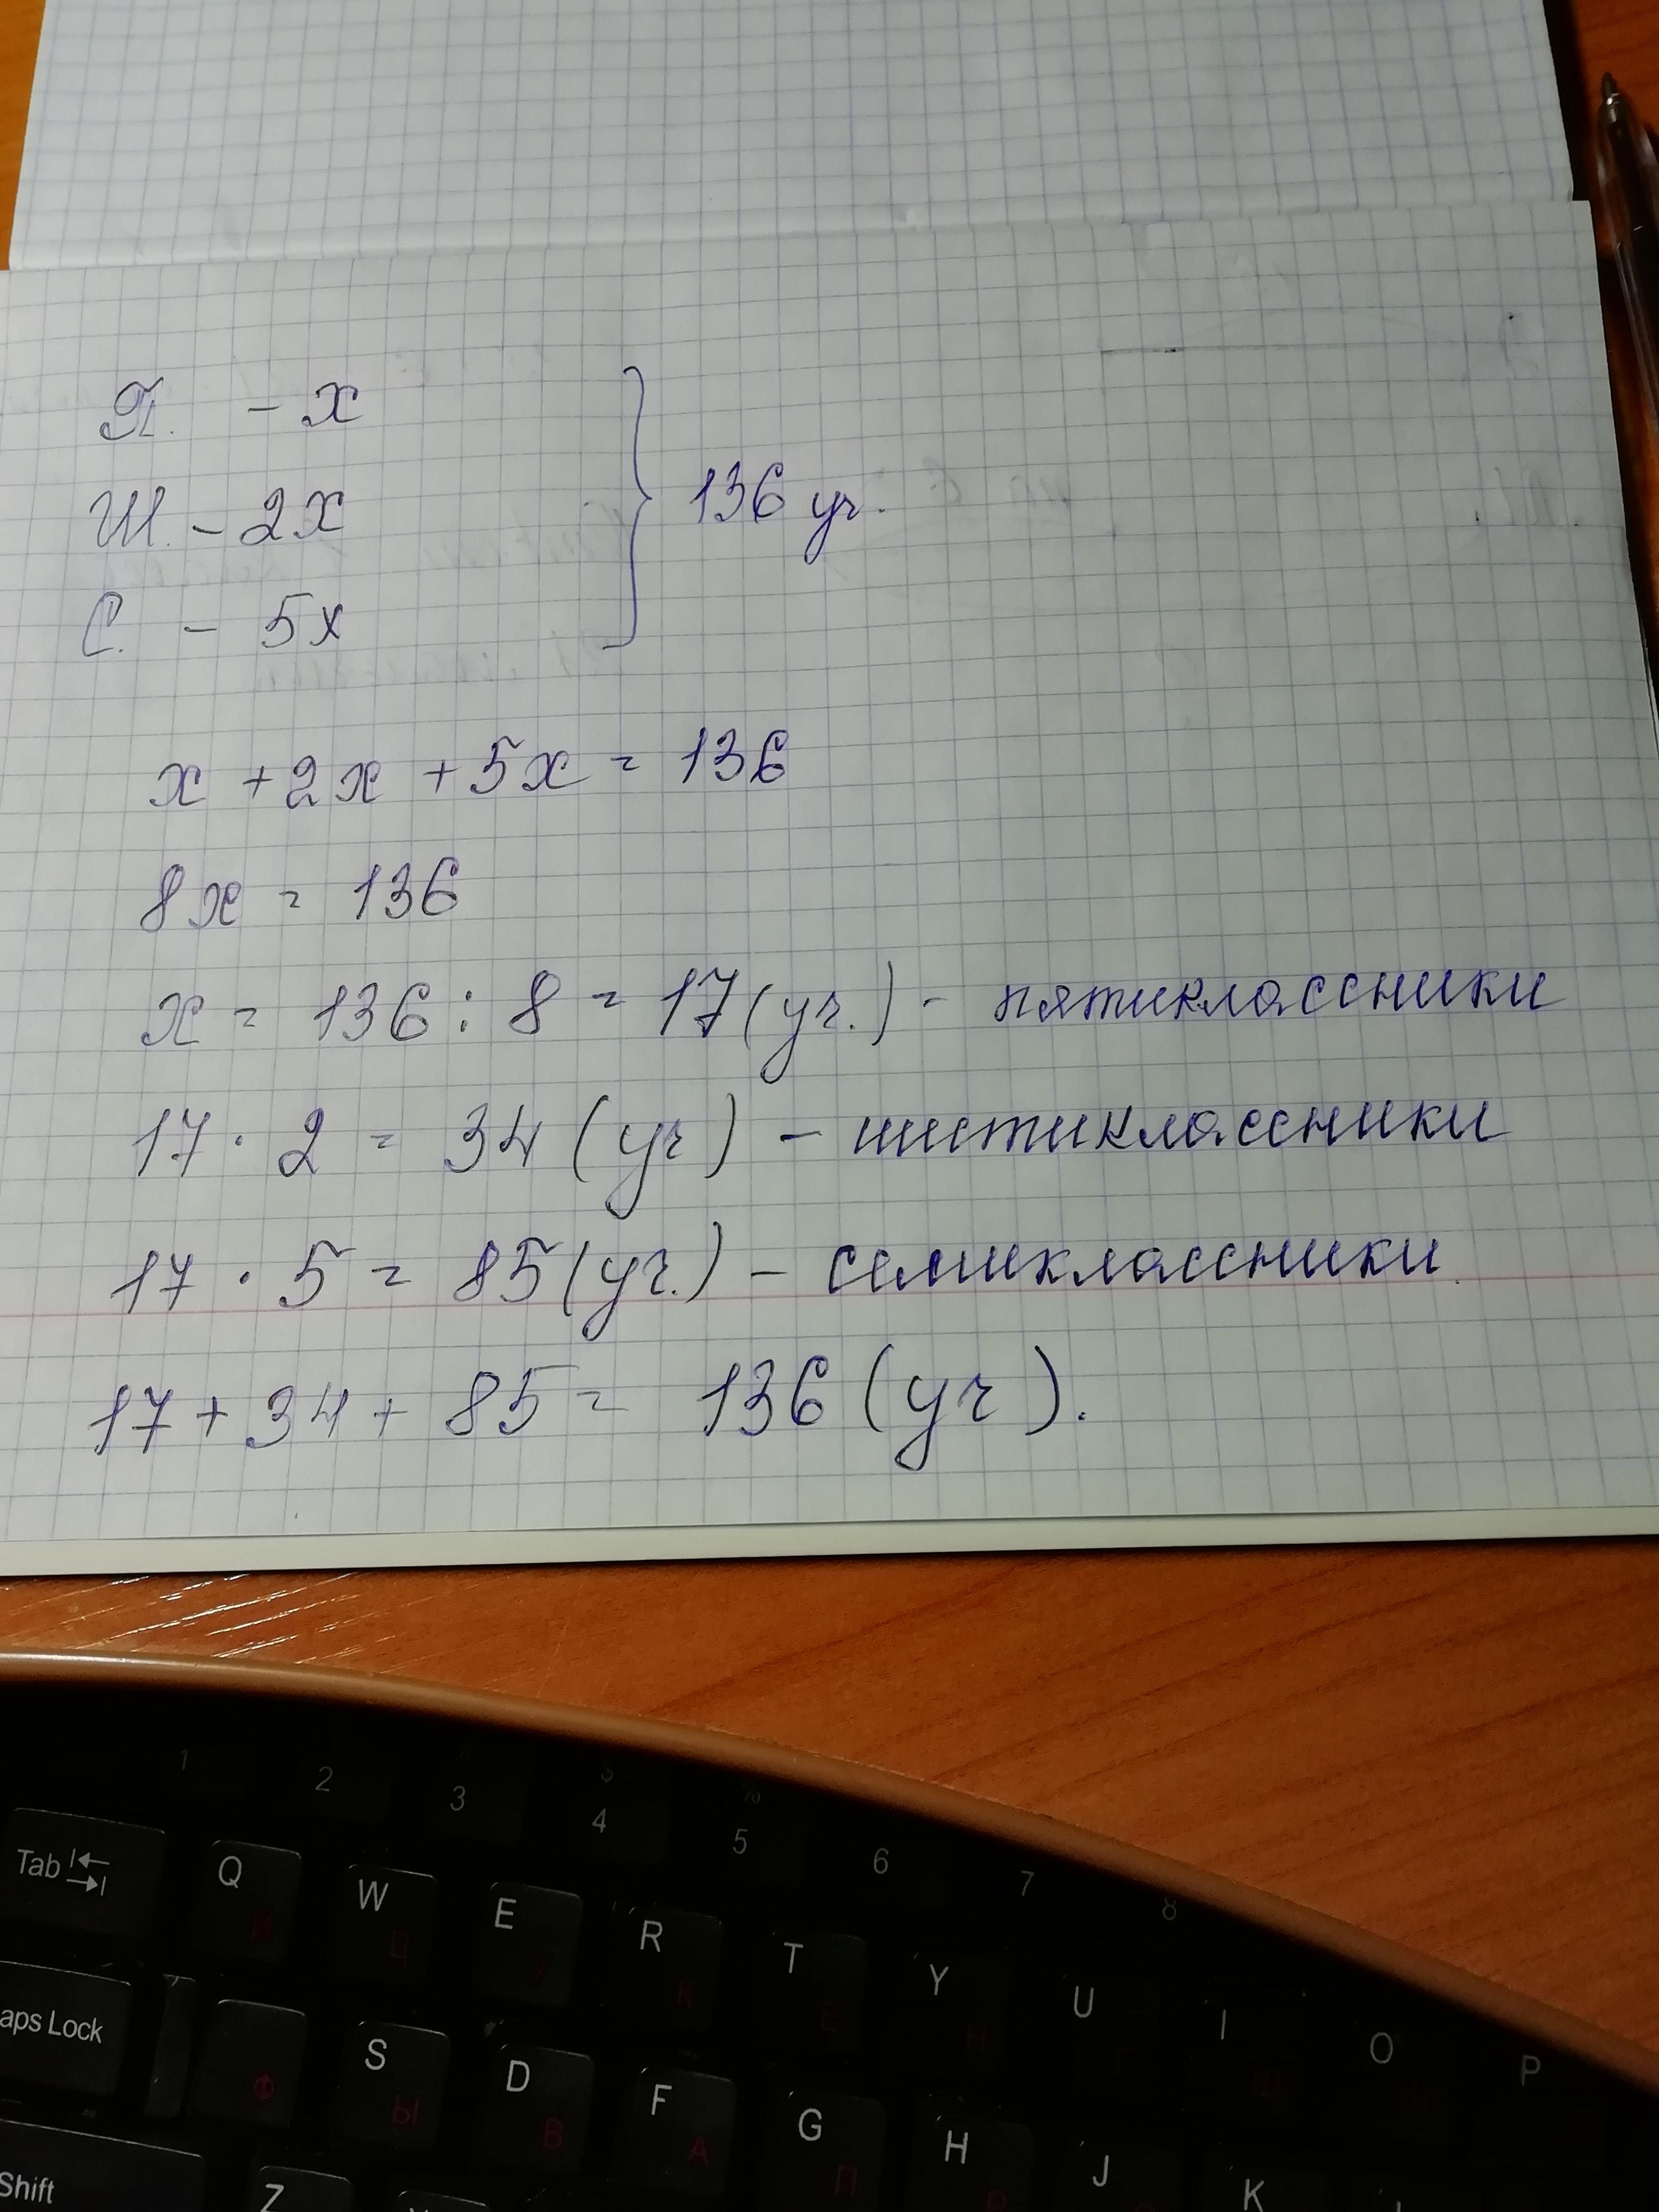 П. - x
Ш. - 2x
С. - 5x
136 уч.
x + 2x + 5x = 136
8x = 136
x = 136 : 8 = 17 (уч.) - пятиклассники
17 · 2 = 34 (уч) - шестиклассники
17 · 5 = 85 (уч.) - семиклассники.
17 + 34 + 85 = 136 (уч).
1 2 3 4 5 6 7 8
Tab Q W E R T Y U I O P
Й Ц К Е Н
aps Lock S D F G H J K
Ф Ы В А П Р
Shift Z